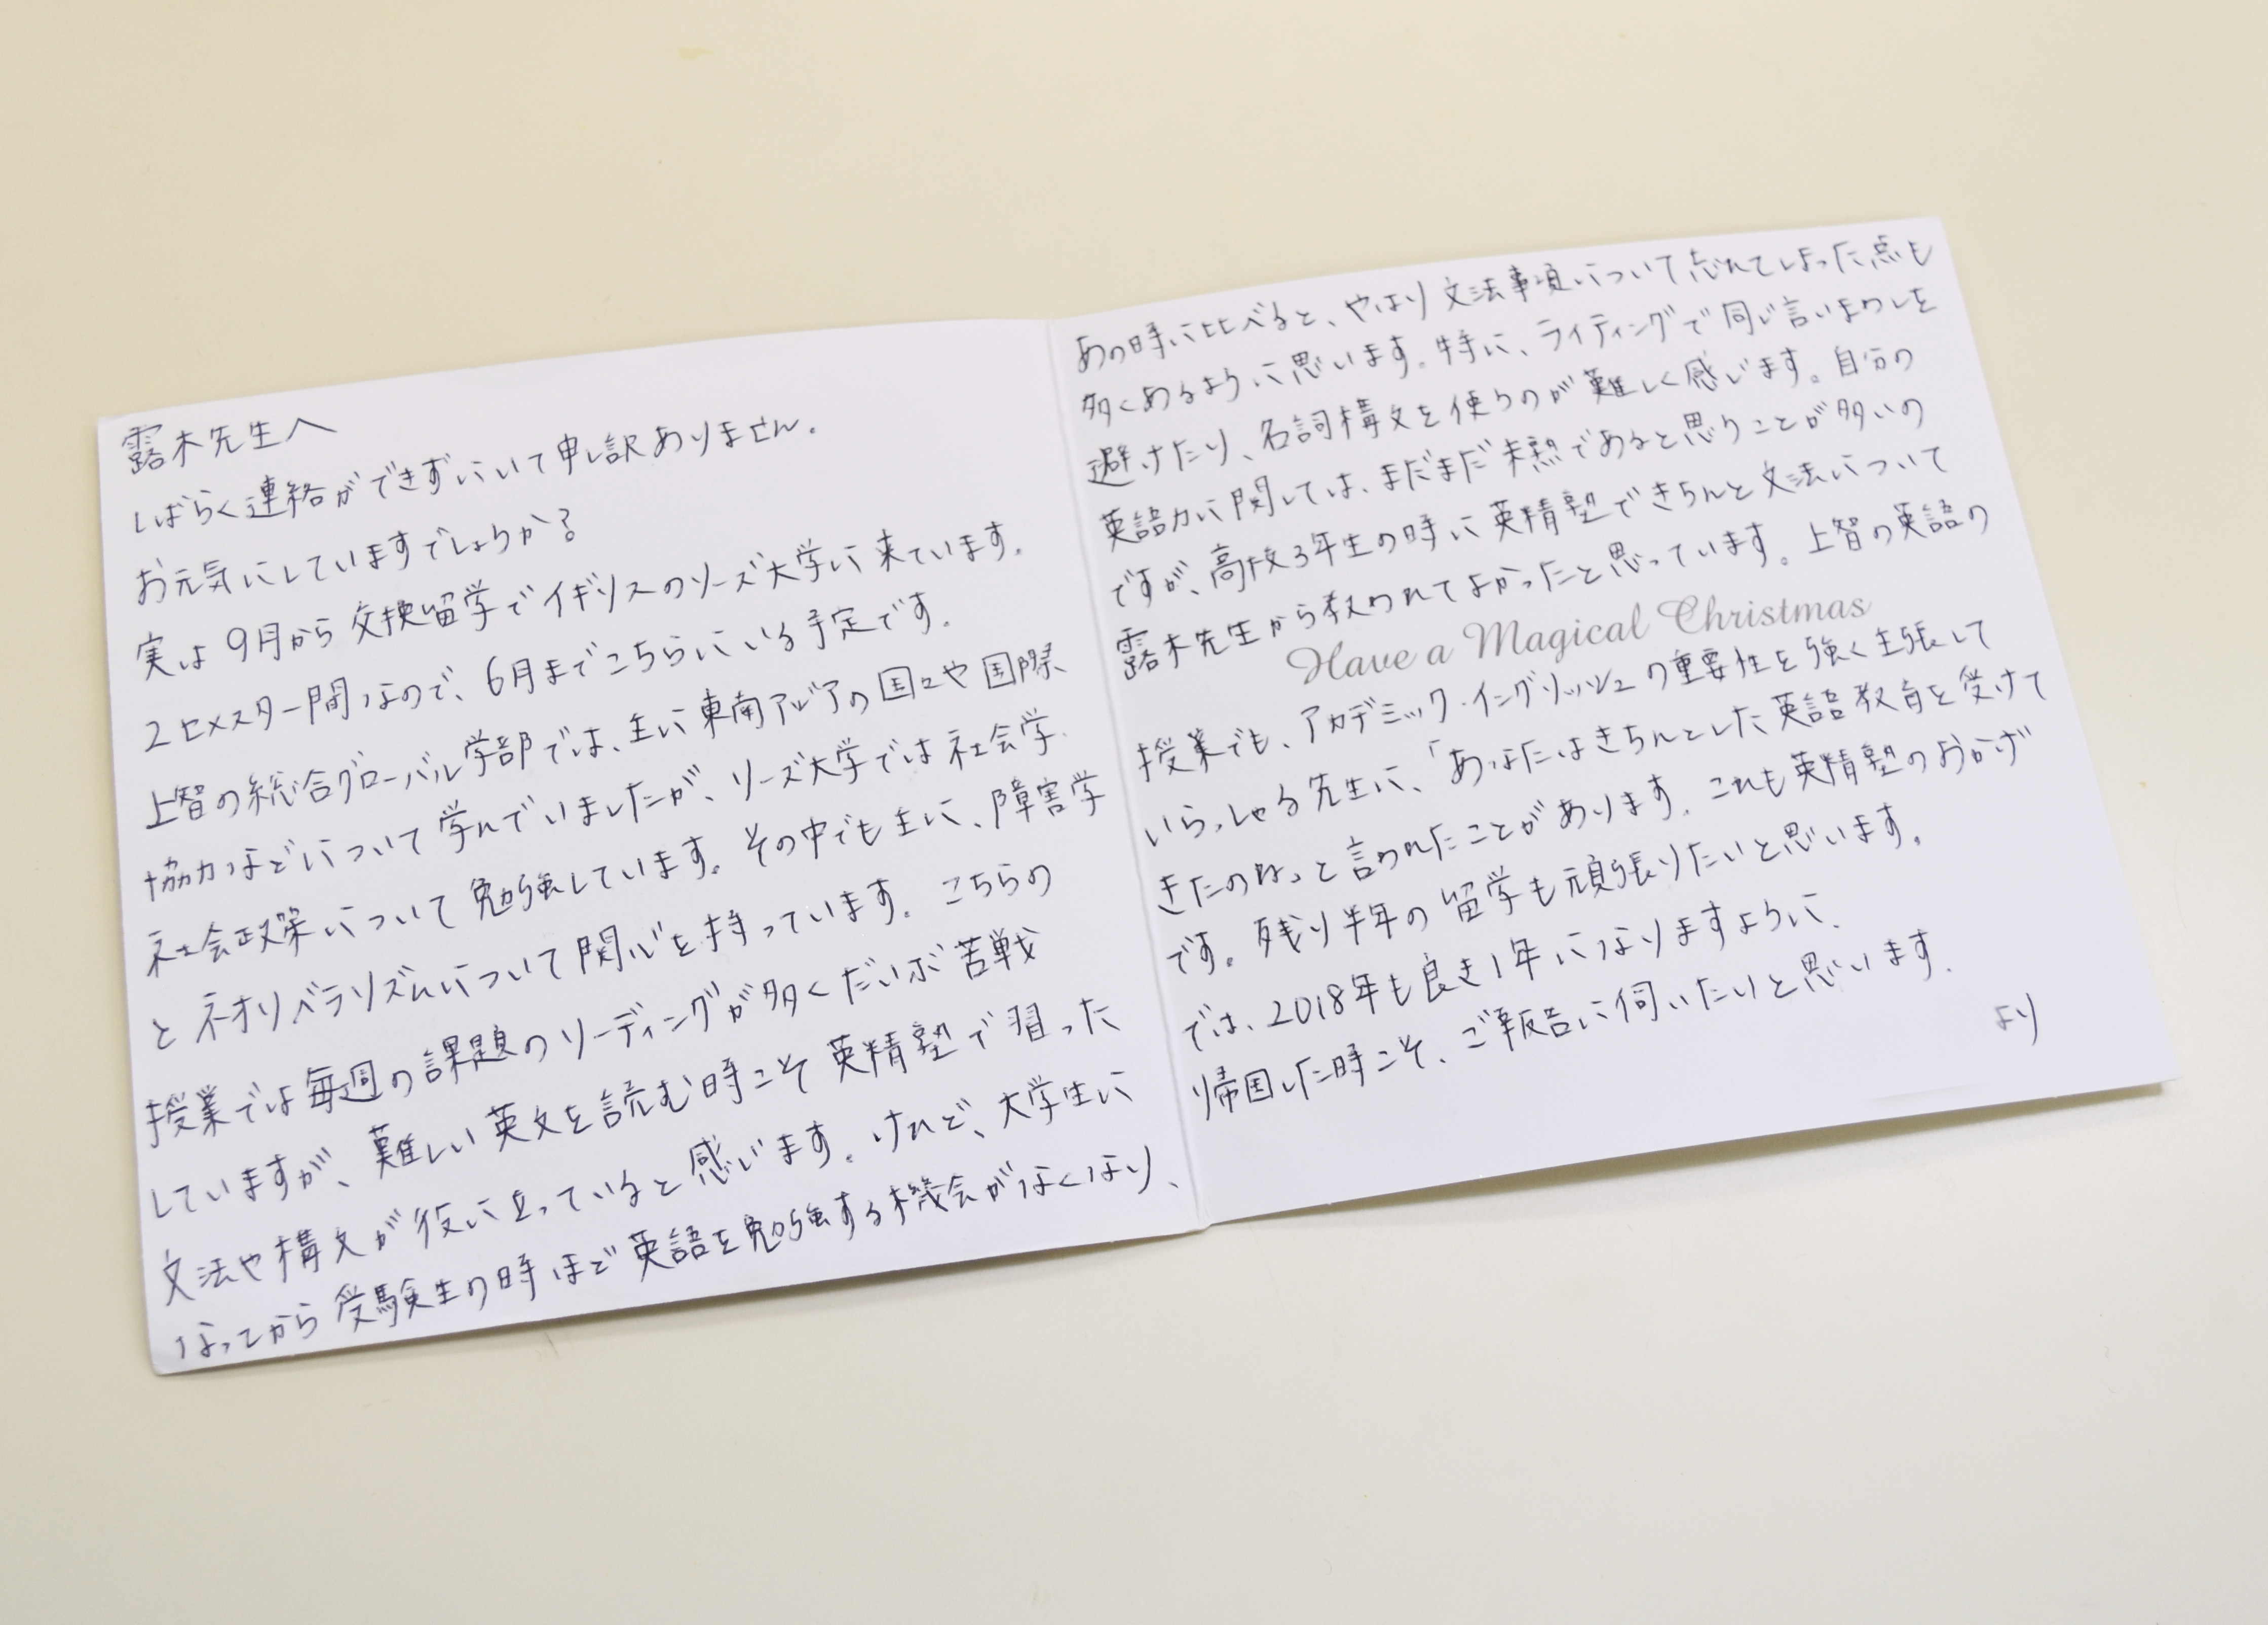 露木先生へ
しばらく連絡ができずにいて申し訳ありません。
お元気にしていますでしょうか？
実は9月から交換留学でイギリスのリーズ大学に来ています。
2セメスター間なので、6月までこちらにいる予定です。
上智の総合グローバル学部では、主に東南アジアの国々や国際
協力などについて学んでいましたが、リーズ大学では社会学、
社会政策について勉強しています。その中でも主に、障害学
とネオリベラリズムについて関心を持っています。こちらの
授業では毎週の課題のリーディングが多くだいぶ苦戦
していますが、難しい英文を読む時こそ英精塾で習った
文法や構文が役に立っていると感じます。けれど、大学生に
なってから受験生の時ほど英語を勉強する機会がなくなり、
あの時に比べると、やはり文法事項について忘れてしまった点も
多くあるように思います。特に、ライティングで同じ言いまわしを
避けたり、名詞構文を使うのが難しく感じます。自分の
英語力に関しては、まだまだ未熟であると思うことが多いの
ですが、高校3年生の時に英精塾できちんと文法について
露木先生から教われてよかったと思っています。上智の英語の
Have a Magical Christmas
授業でも、アカデミック・イングリッシュの重要性を強く主張して
いらっしゃる先生に、「あなたはきちんとした英語教育を受けて
きたのね」と言われたことがあります。これも英精塾のおかげ
です。残り半年の留学も頑張りたいと思います。
では、2018年も良き1年になりますように、
帰国した時こそ、ご報告に伺いたいと思います。
より